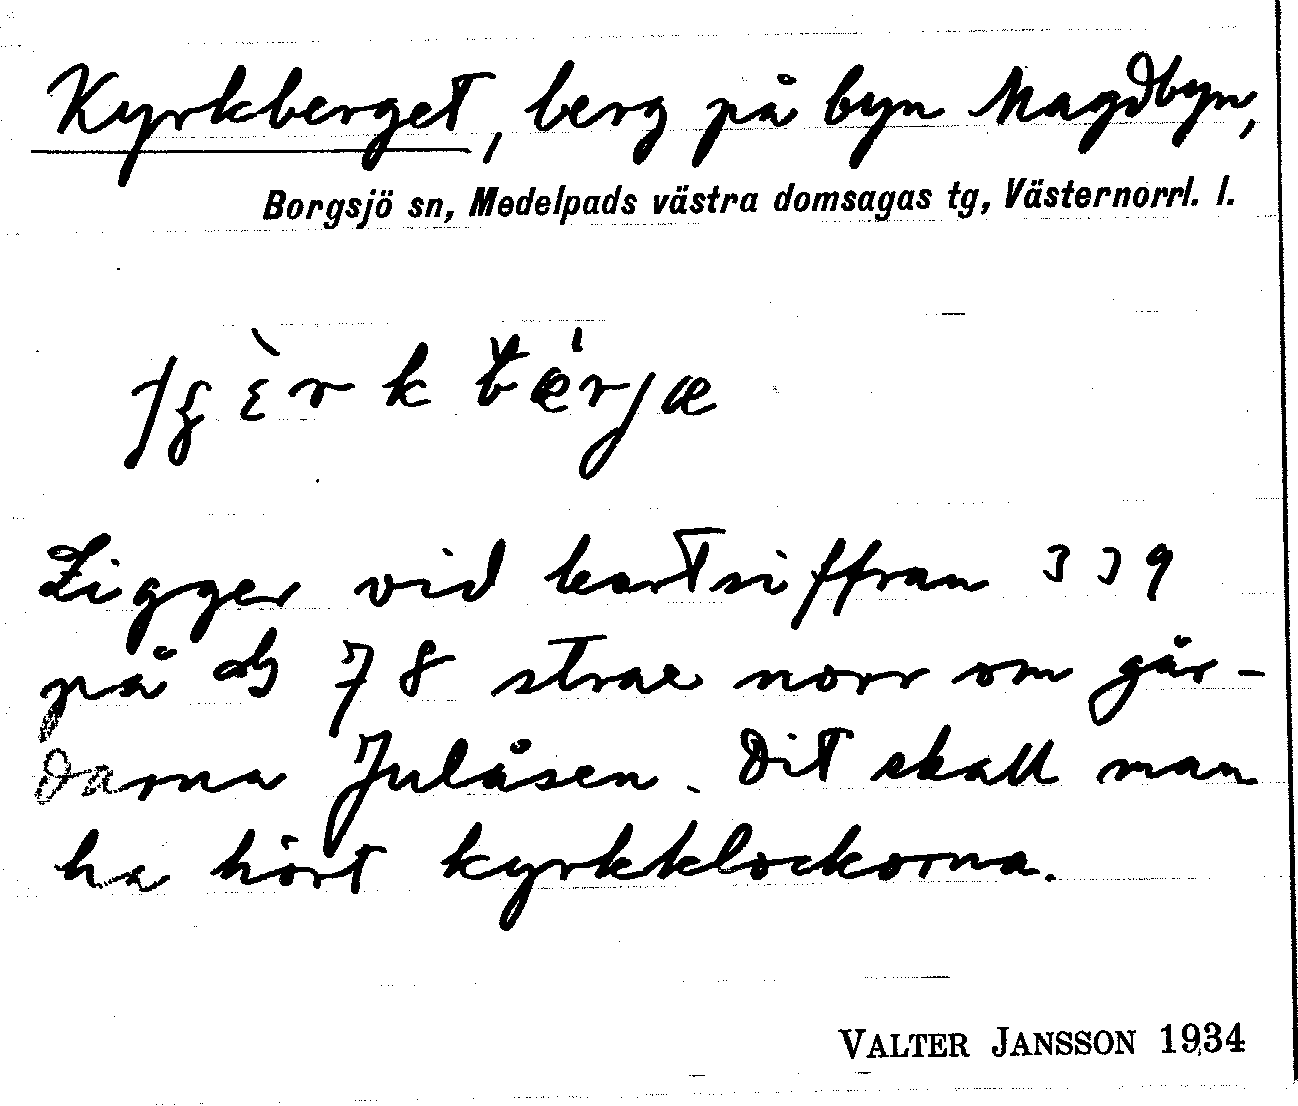 Kyrkberget, berg på byn Magdbyn,
Borgsjö sn, Medelpads västra domsagas tg, Västernorrl. l.
Ligger vid kartsiffran 339
på ab 78 strax norr om går-
darna Julåsen. Dit skall man
ha hört kyrkklockorna.
VALTER JANSSON 1934